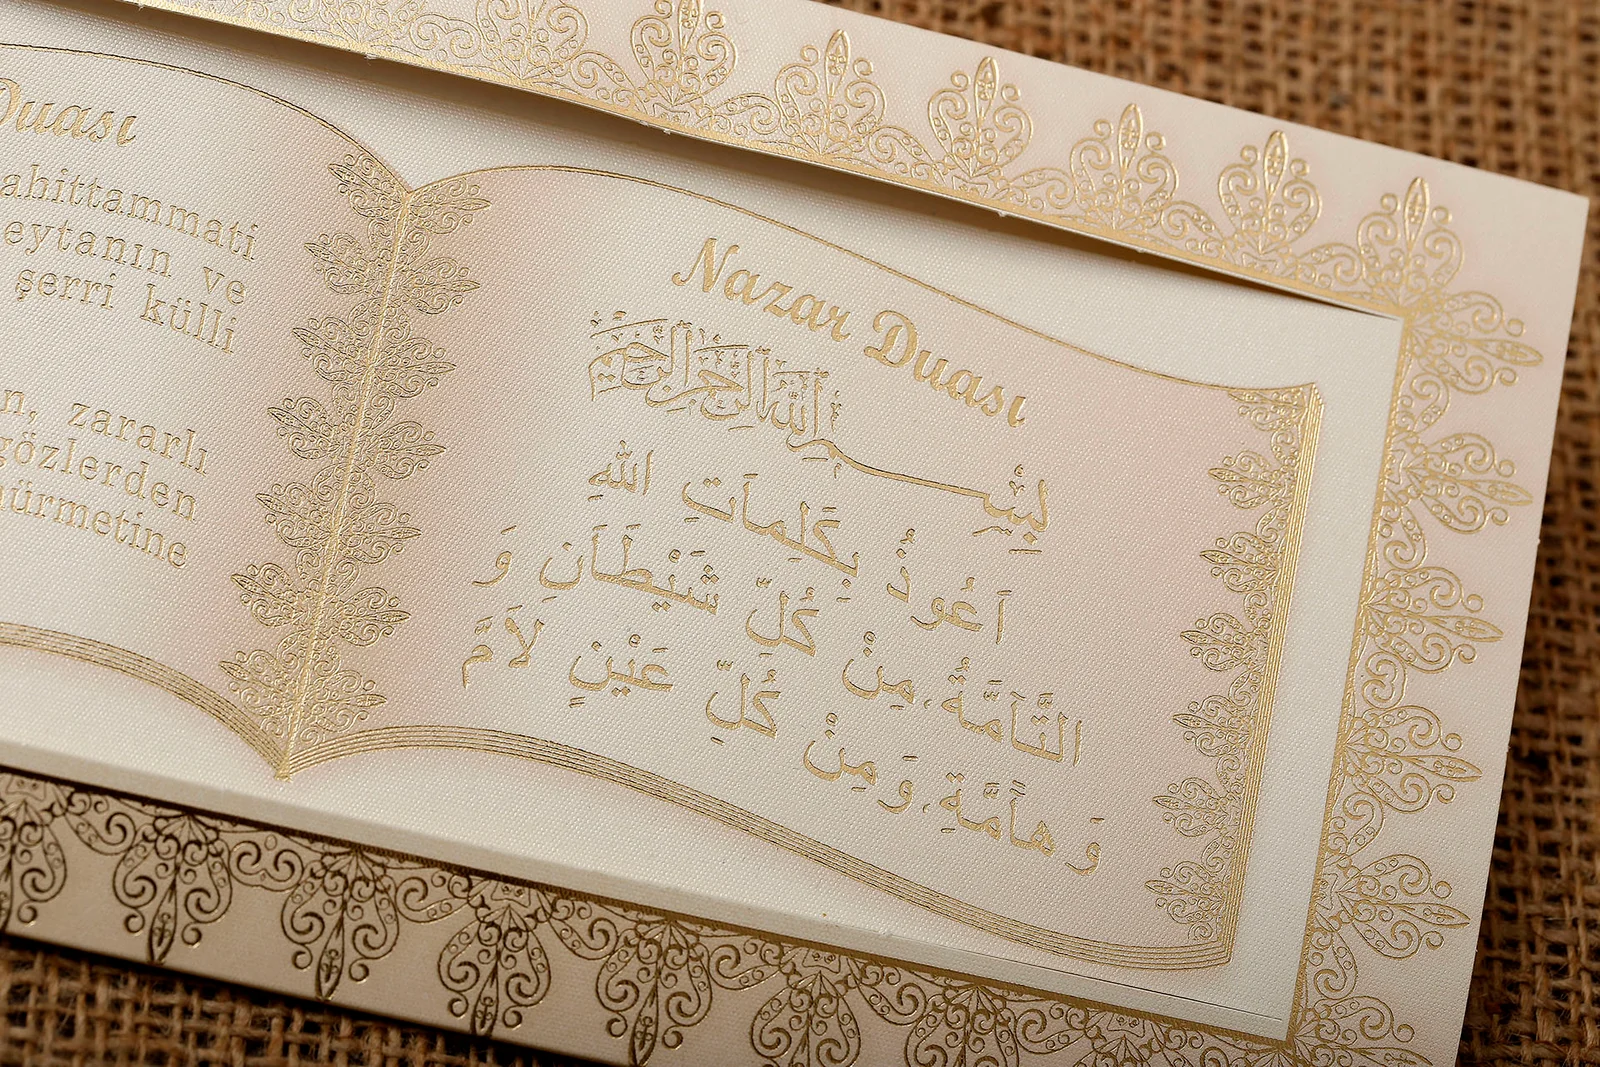 Duası
ahittammati
eytanın ve
şerri külli
n, zararlı
gözlerden
hürmetine
Nazar Duası
بِسْمِ اللهِ الرَّحْمٰنِ الرَّحِيمِ
اَعُوذُ بِكَلِمَاتِ اللهِ
التَّآمَّةِ، مِنْ كُلِّ شَيْطَانٍ وَ
وَ هاَمَّةٍ، وَمِنْ كُلِّ عَيْنٍ لاَمَّ